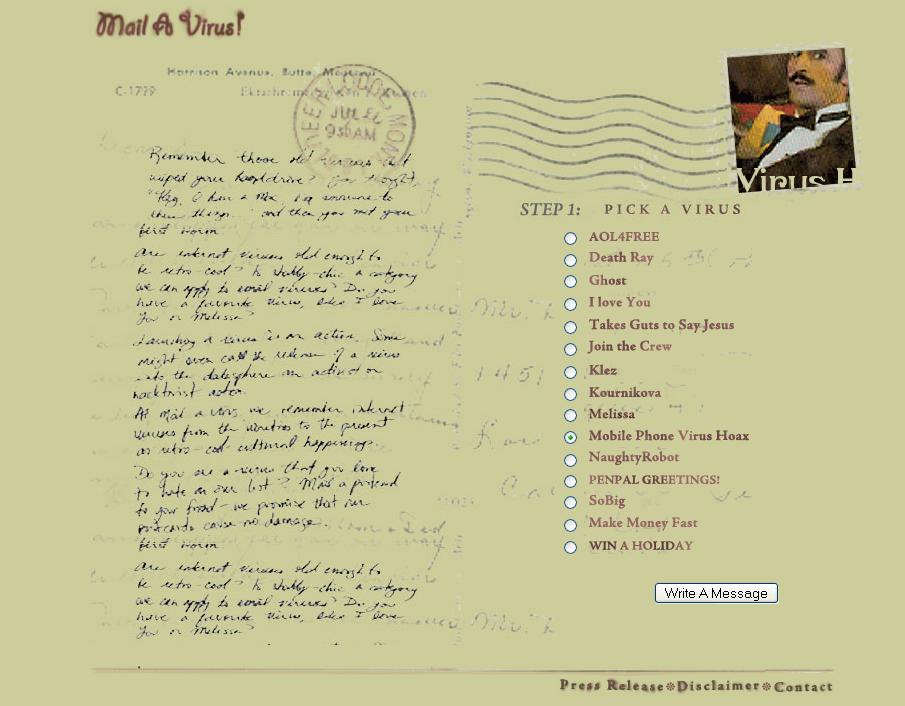 Mail A Virus!
Harrison Avenue, Butte, Montana
C-1799
Ektachrome by
JUL
930AM
Virus H
Remember those old viruses that
wiped your hard drive? You thought,
"Hey, I have a Mac, I'm immune to
these things..." and then you met your
first worm.
Are internet viruses old enough to
be retro-cool? Is shabby-chic a category
we can apply to email viruses? Do you
have a favorite virus, like I love
You or Melissa?
Launching a virus is an action. Some
might even call the release of a virus
into the datasphere an activist or
hacktivist action.
At Mail a virus we remember internet
viruses from the nineties to the present
as retro-cool cultural happenings.
Do you have a virus that you love
to hate on our list? Mail a pretend
to your friend - we promise that our
postcards cause no damage.
first worm.
Are internet viruses old enough to
be retro-cool? Is shabby-chic a category
we can apply to email viruses? Do you
have a favorite virus, like I love
You or Melissa?
STEP 1: PICK A VIRUS
AOL4FREE
Death Ray
Ghost
I love You
Takes Guts to Say Jesus
Join the Crew
Klez
Kournikova
Melissa
Mobile Phone Virus Hoax
NaughtyRobot
PENPAL GREETINGS!
SoBig
Make Money Fast
WIN A HOLIDAY
Write A Message
Press Release Disclaimer Contact